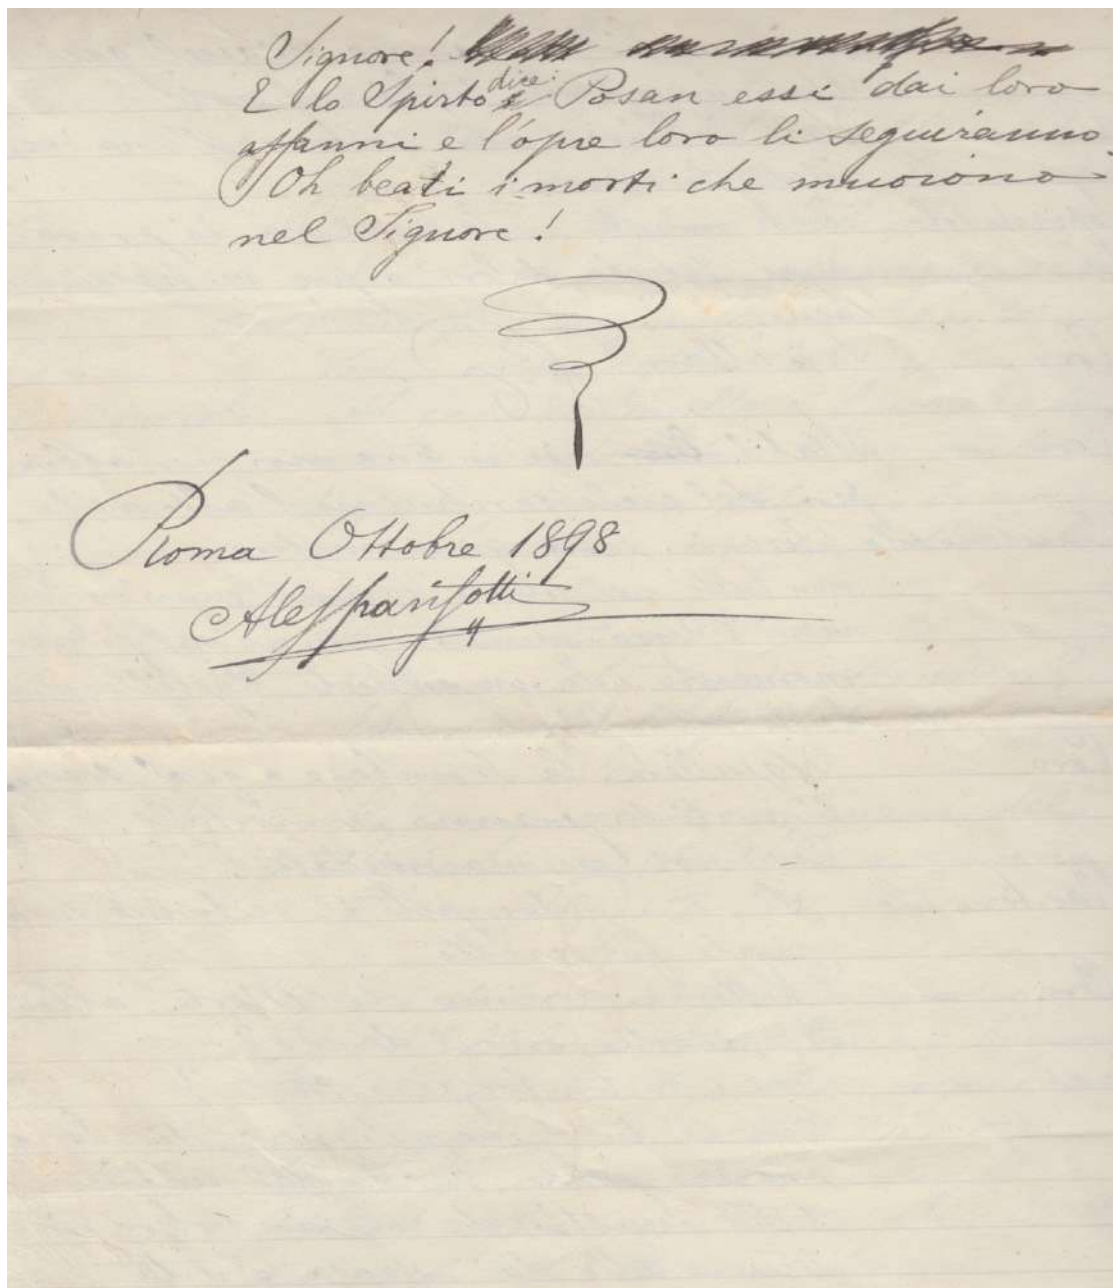 Signore!
E lo Spirto dice: Posan essi dai loro
affanni e l'opre loro li seguiranno.
Oh beati i morti che muoiono
nel Signore!
Roma Ottobre 1898
AlesParisotti